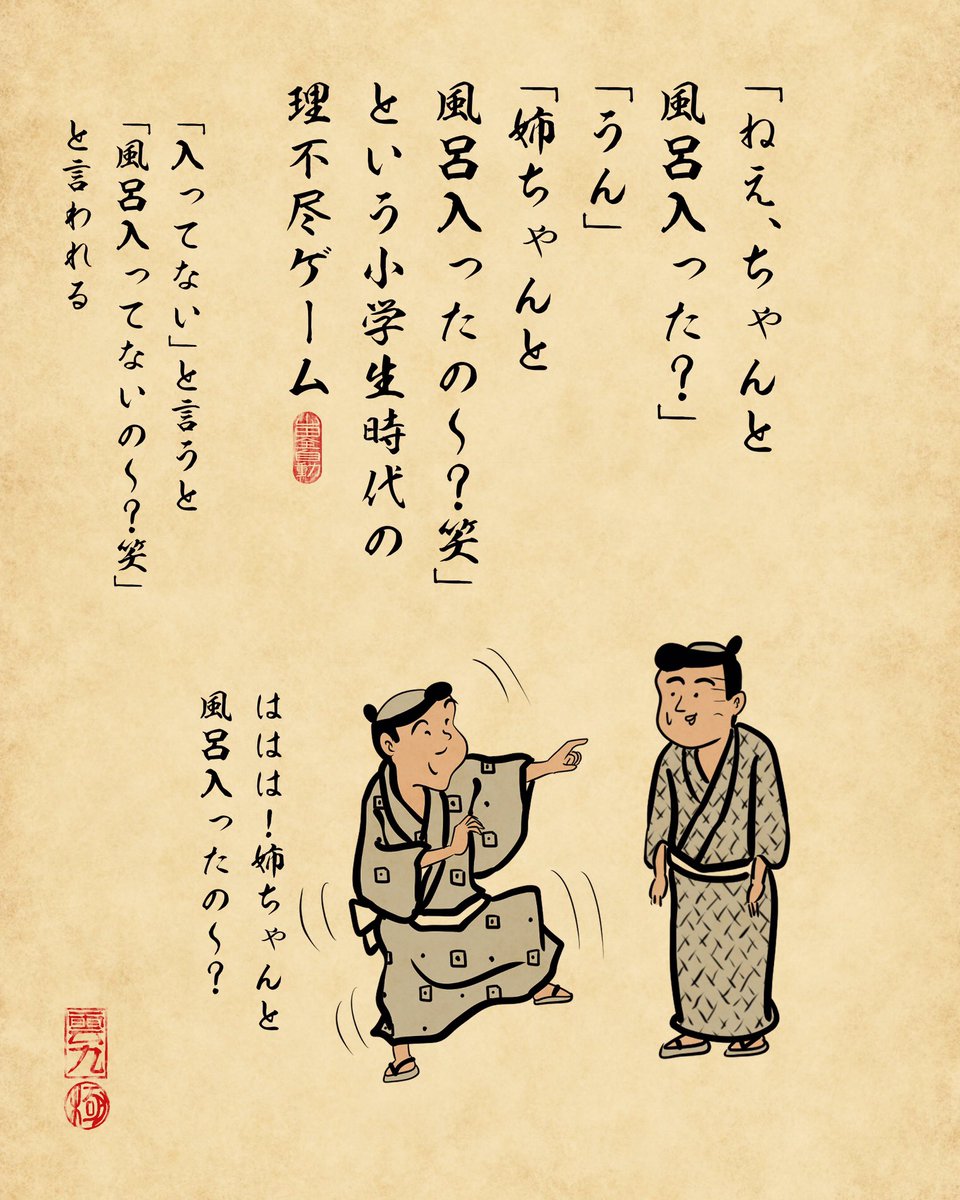 「ねえ、ちゃんと
風呂入った？」
「うん」
「姉ちゃんと
風呂入ったの〜？笑」
という小学生時代の
理不尽ゲーム
「入ってない」と言うと
「風呂入ってないの〜？笑」
と言われる
ははは！姉ちゃんと
風呂入ったの〜？